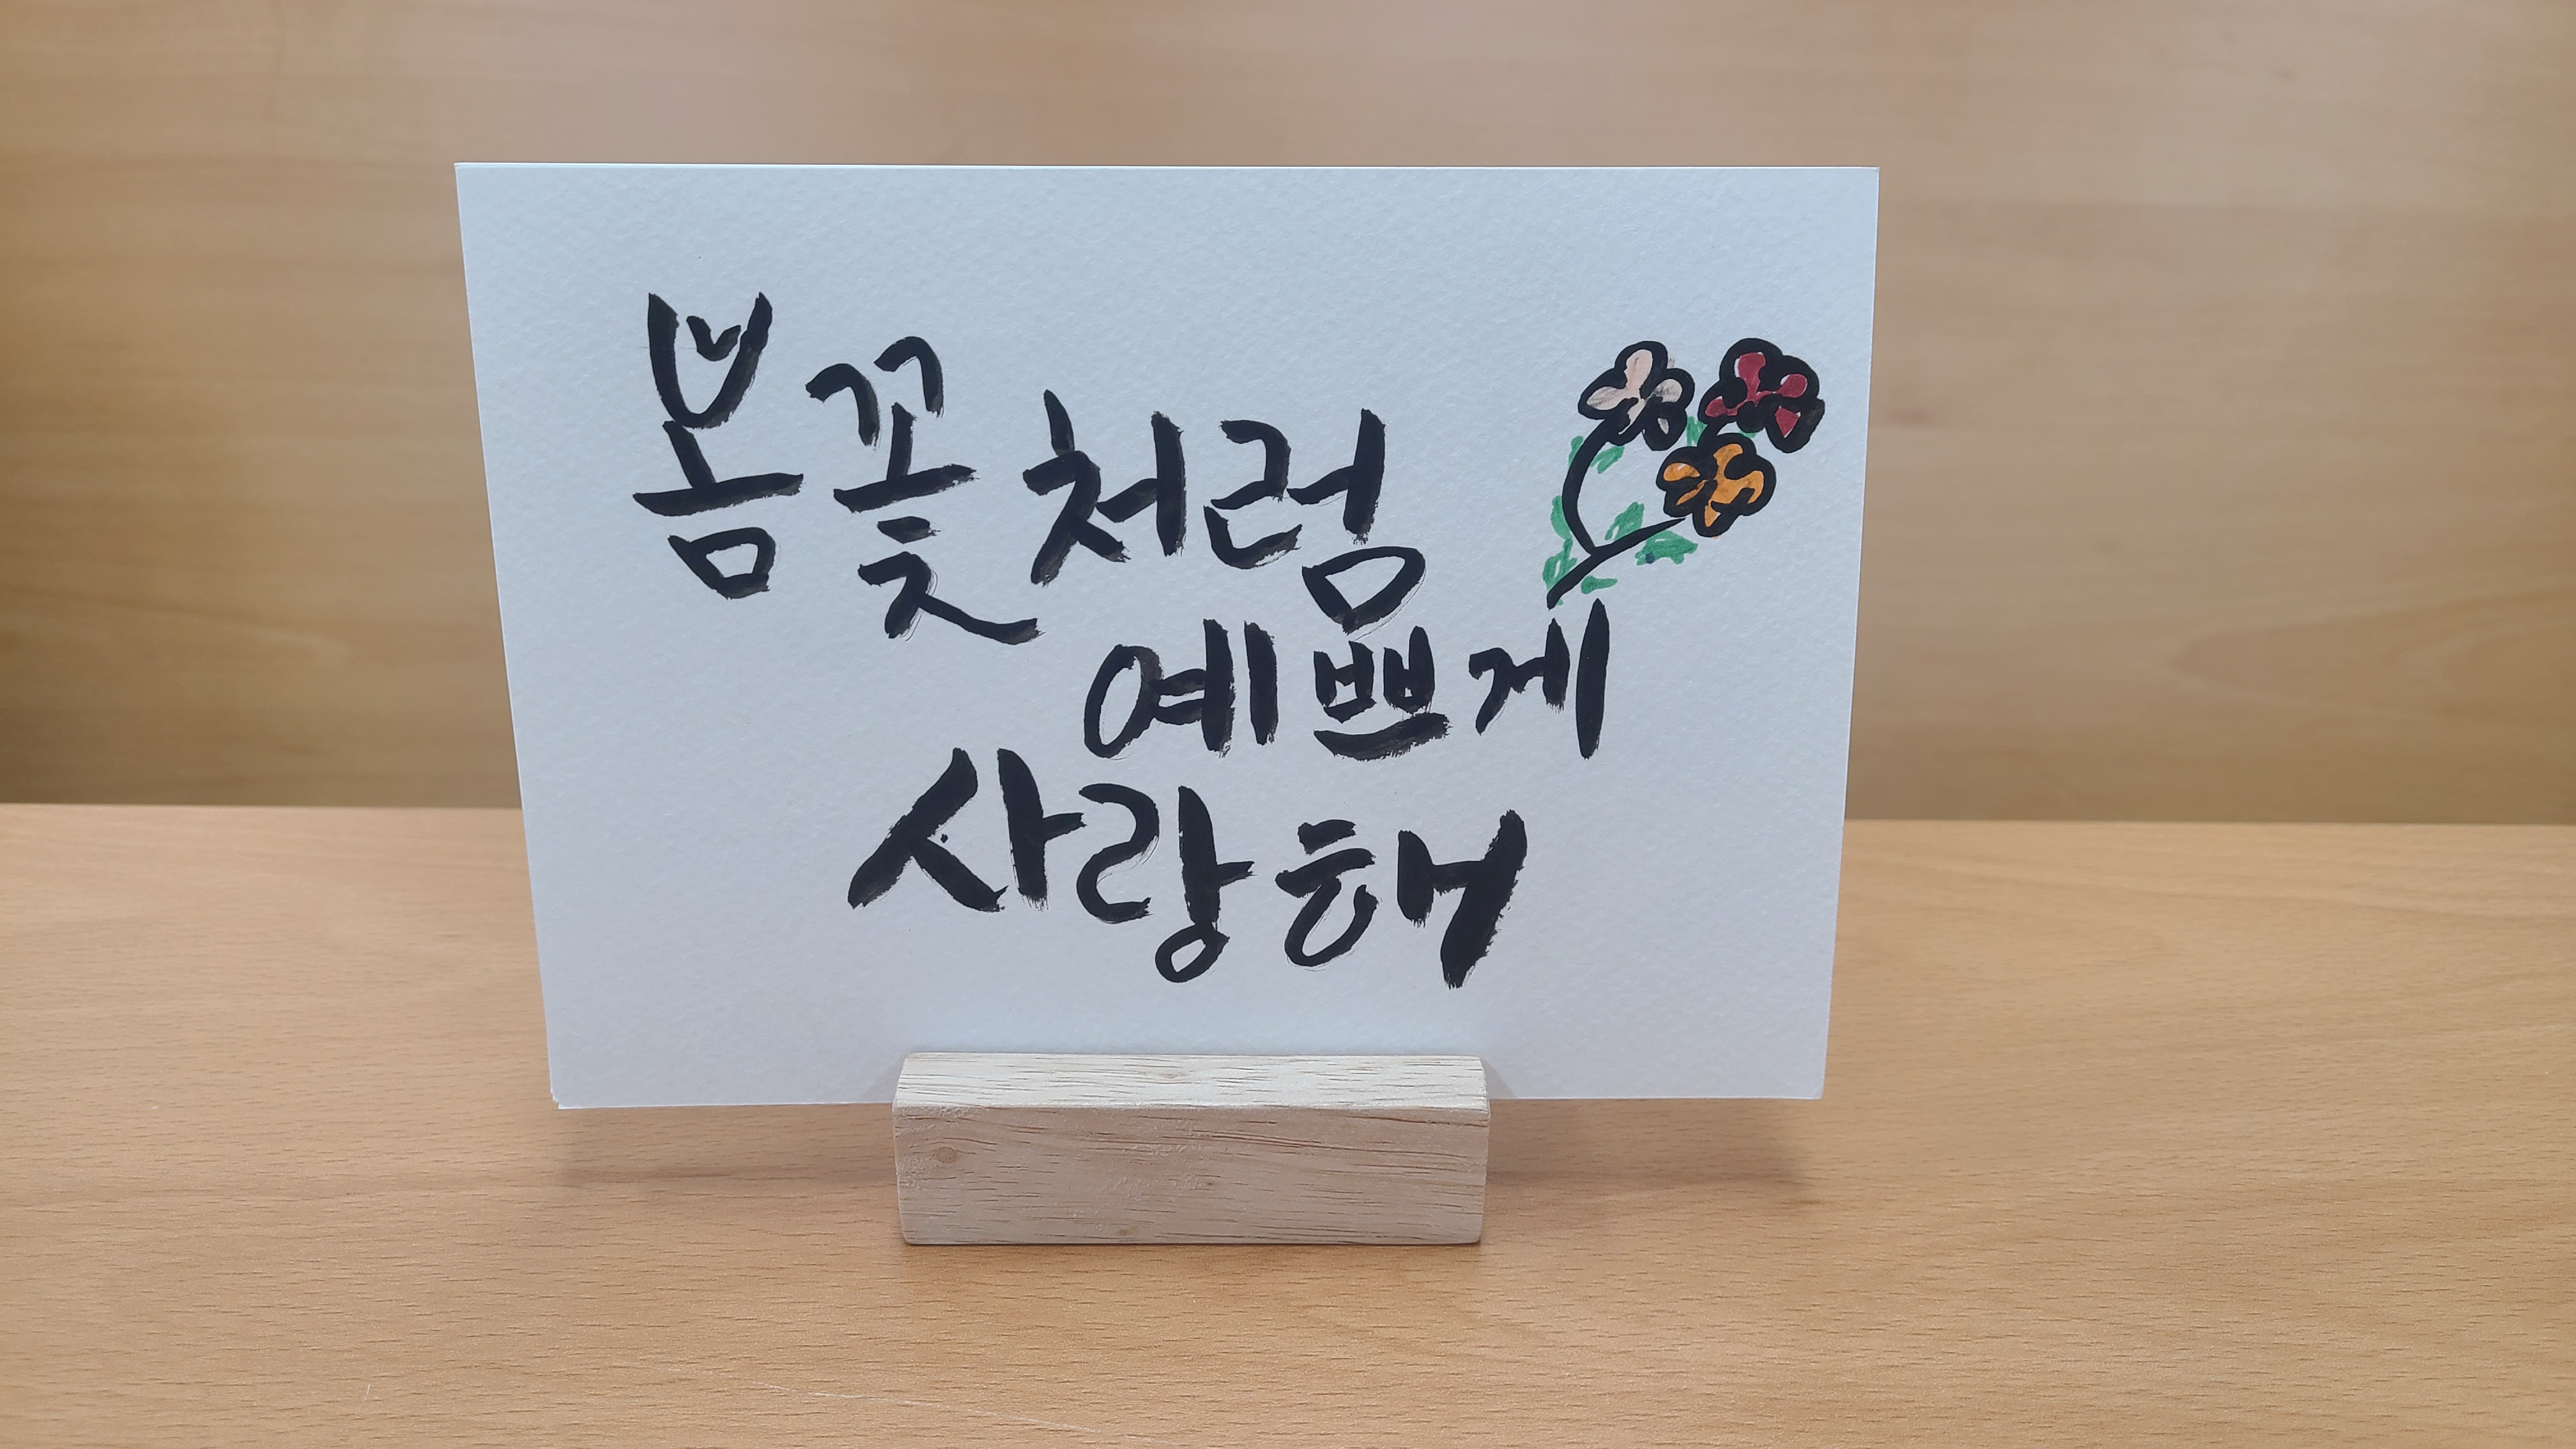 봄꽃처럼
예쁘게
사랑해